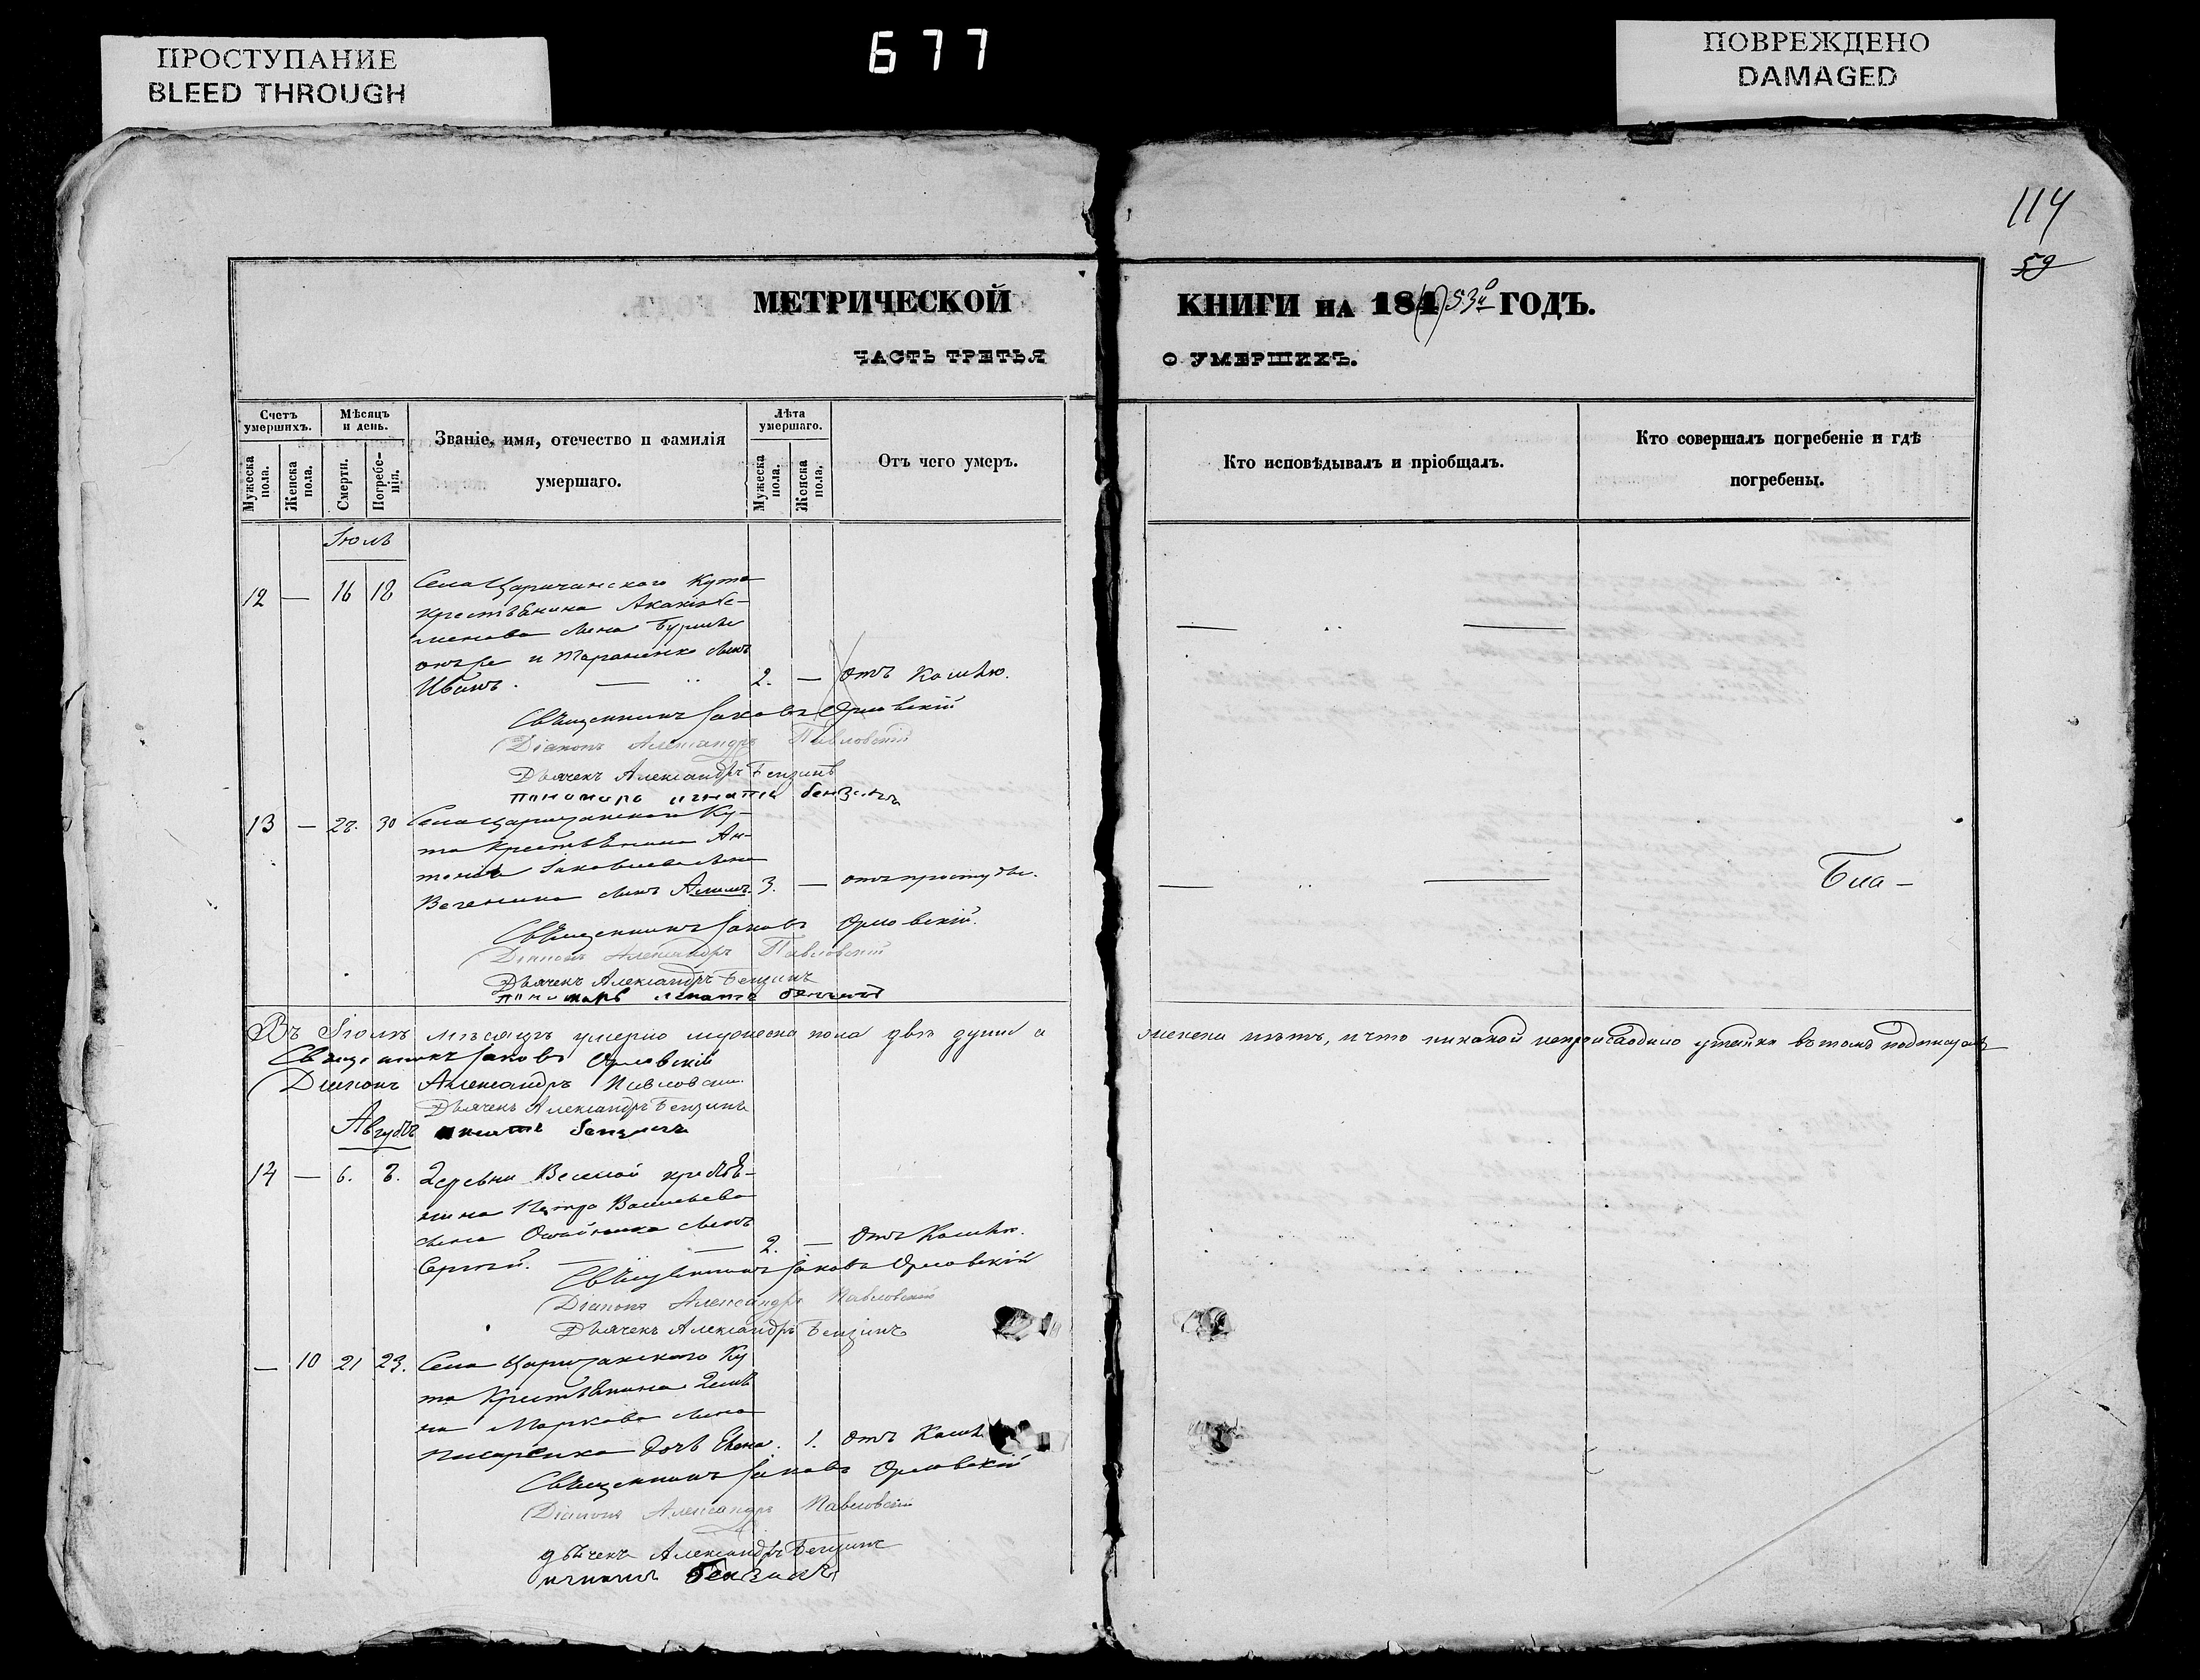 ПРОСТУПАНИЕ
BLEED THROUGH
677
ПОВРЕЖДЕНО
DAMAGED
114
59
МЕТРИЧЕСКОЙ КНИГИ НА 184 53й ГОДЪ.
ЧАСТЬ ТРЕТЬЯ О УМЕРШИХЪ.
Счетъ умершихъ.
Мужеска пола.
Женска пола.
Мѣсяцъ и день.
Смерти.
Погребенія.
Званіе, имя, отечество и фамилія
умершаго.
Лѣта умершаго.
Мужеска пола.
Женска пола.
Отъ чего умеръ.
Кто исповѣдывалъ и пріобщалъ.
Кто совершалъ погребеніе и гдѣ
погребены.
Іюль
12 — 16 18 Села Царичанскаго Кута
крестьянина Акакія Се-
менова сына
и Тараненко сынъ
Иванъ. — 2. — отъ кашлю.
Священникъ Іаковъ Орловскій
Діаконъ Александръ Павловскій
Дьячекъ Александръ Бензинъ
пономарь игнатій бензинъ
13 — 28. 30 Села Царичанскаго Ку-
та крестьянина Ан-
тонія Іаковлева сына
сынъ 3. — отъ простуды.
Священникъ Іаковъ Орловскій.
Діаконъ Александръ Павловскій
Дьячекъ Александръ Бензинъ
пономарь игнатій бензинъ
Въ Іюлѣ мѣсяцѣ умерло мужеска пола двѣ души а женска нѣтъ, и что никакой непроисходило утайки вътомъ подписуемъ
Священникъ Іаковъ Орловскій
Діаконъ Александръ Павловскій
Дьячекъ Александръ Бензинъ
Августъ игнатій бензинъ
14 — 6. 8. Деревни Веселой крестья-
нина Петра Васильева
сына сынъ
Сергій. — 2. — отъ Кашлю.
Священникъ Іаковъ Орловскій
Діаконъ Александръ Павловскій
Дьячекъ Александръ Бензинъ
— 10 21 23. Села Царичанскаго Ку
та Крестьянина
Маркова сына
Писаренка дочь 1. отъ Кашл
Священникъ Іаковъ Орловскій
Діаконъ Александръ Павловскій
дьячекъ Александръ Бензинъ
игнатій бензинъ